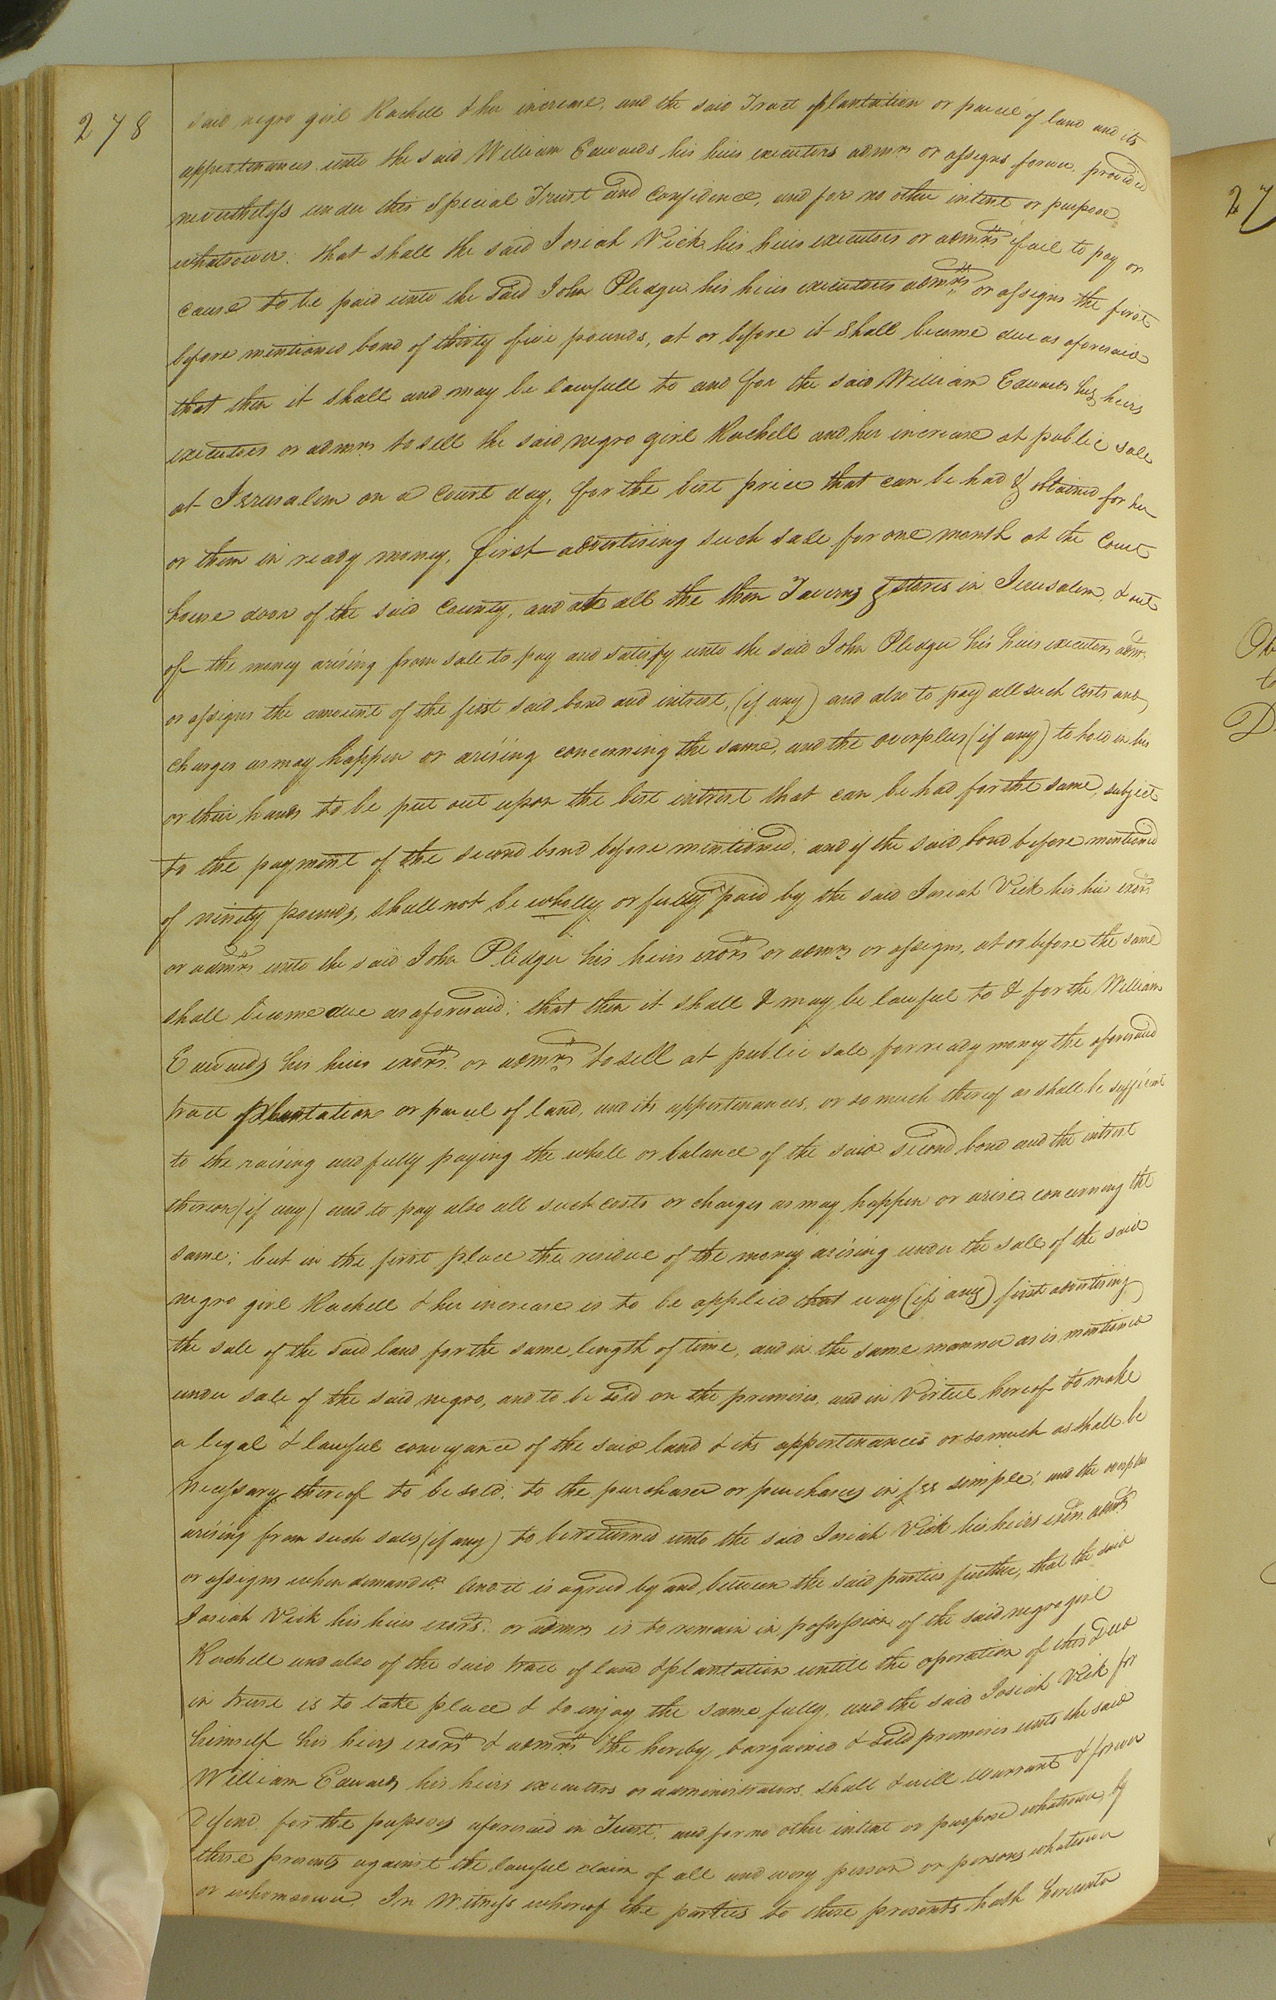 278
said negro girl Rachell & her increase, and the said Tract plantation or parcel of land and its
appertenances unto the said William Edwards his heirs executors admrs or assigns forever, provided
nevertheless under this Special Trust and confidence, and for no other intent or purpose
whatsoever: that shall the said Josiah Vick his heirs executors or admrs fail to pay or
cause to be paid unto the said John Pledger his heirs executors admrs or assigns the first
before mentioned bond of thirty five pounds, at or before it shall become due as aforesaid
that then it shall and may be lawfull to and for the said William Edwards his heirs
executors or admrs to sell the said negro girl Rachell and her increase at public sale
at Jerusalem on a Court day, for the best price that can be had & obtained for her
or them in ready money, first advertising such sale for one month at the Court
house door of the said County, and at all the then Taverns & stores in Jerusalem, & out
of the money arising from sale to pay and satisfy unto the said John Pledger his heirs executors admrs
or assigns the amount of the first said bond and intrest, (if any) and also to pay all such costs and
charges as may happen or arising concerning the same, and the overplus (if any) to hold in his
or their hands to be put out upon the best intrest that can be had for the same, subject
to the payment of the second bond before mentioned; and if the said bond before mentioned
of ninety pounds, shall not be wholly or fully paid by the said Josiah Vick his heirs exors
or admrs unto the said John Pledger his heirs exors or admrs or assigns, at or before the same
shall become due as aforesaid; that then it shall & may be lawful to & for the William
Edwards his heirs exors or admrs to sell at public sale for ready money the aforesaid
tract plantation or parcel of land, and its appertenances, or so much thereof as shall be sufficient
to the raising and fully paying the whole or balance of the said second bond and the intrest
thereon (if any) and to pay also all such costs or charges as may happen or arise concerning the
same; but in the first place the residue of the money arising under the sale of the said
negro girl Rachell & her increase is to be applied that way (if any) first advertising
the sale of the said land for the same length of time, and in the same manner as is mentioned
under sale of the said negro, and to be sold on the premises, and in Virtue hereof to make
a legal & lawful conveyance of the said land & its appertenances or so much as shall be
necessary thereof to be sold, to the purchaser or purchasers in fee simple; and the overplus
arising from such sales (if any) to be returned unto the said Josiah Vick his heirs exors admrs
or assigns when demanded. And it is agreed by and between the said parties further, that the said
Josiah Vick his heirs exors. or admrs is to remain in possession of the said negro girl
Rachell and also of the said tract of land & plantation untill the operation of this Deed
in trust is to take place & to enjoy the same fully, and the said Josiah Vick for
himself his heirs exors & admrs the hereby bargained & sold premises unto the said
William Edwards his heirs executors or administrators shall & will warrant & forever
Defend for the purposes aforesaid in Trust, and for no other intent or purpose whatsoever, by
these presents against the lawful claim of all and every person or persons whatsoever
or whomsoever. In Witness whereof the parties to these presents hath hereunto
27